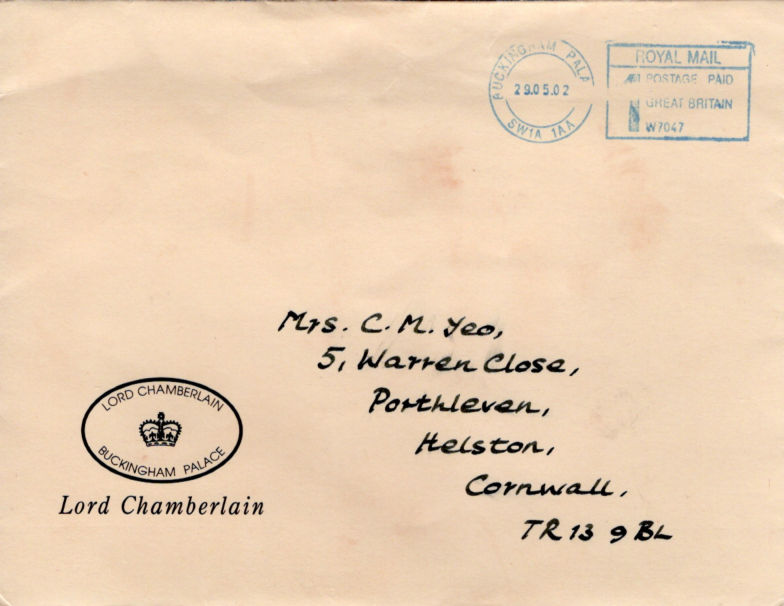 BUCKINGHAM PALA
29.05.02
SW1A 1AA
ROYAL MAIL
POSTAGE PAID
GREAT BRITAIN
W7047
Mrs. C. M. Yeo,
5, Warren Close,
Porthleven,
Helston,
Cornwall.
TR13 9BL
LORD CHAMBERLAIN
BUCKINGHAM PALACE
Lord Chamberlain